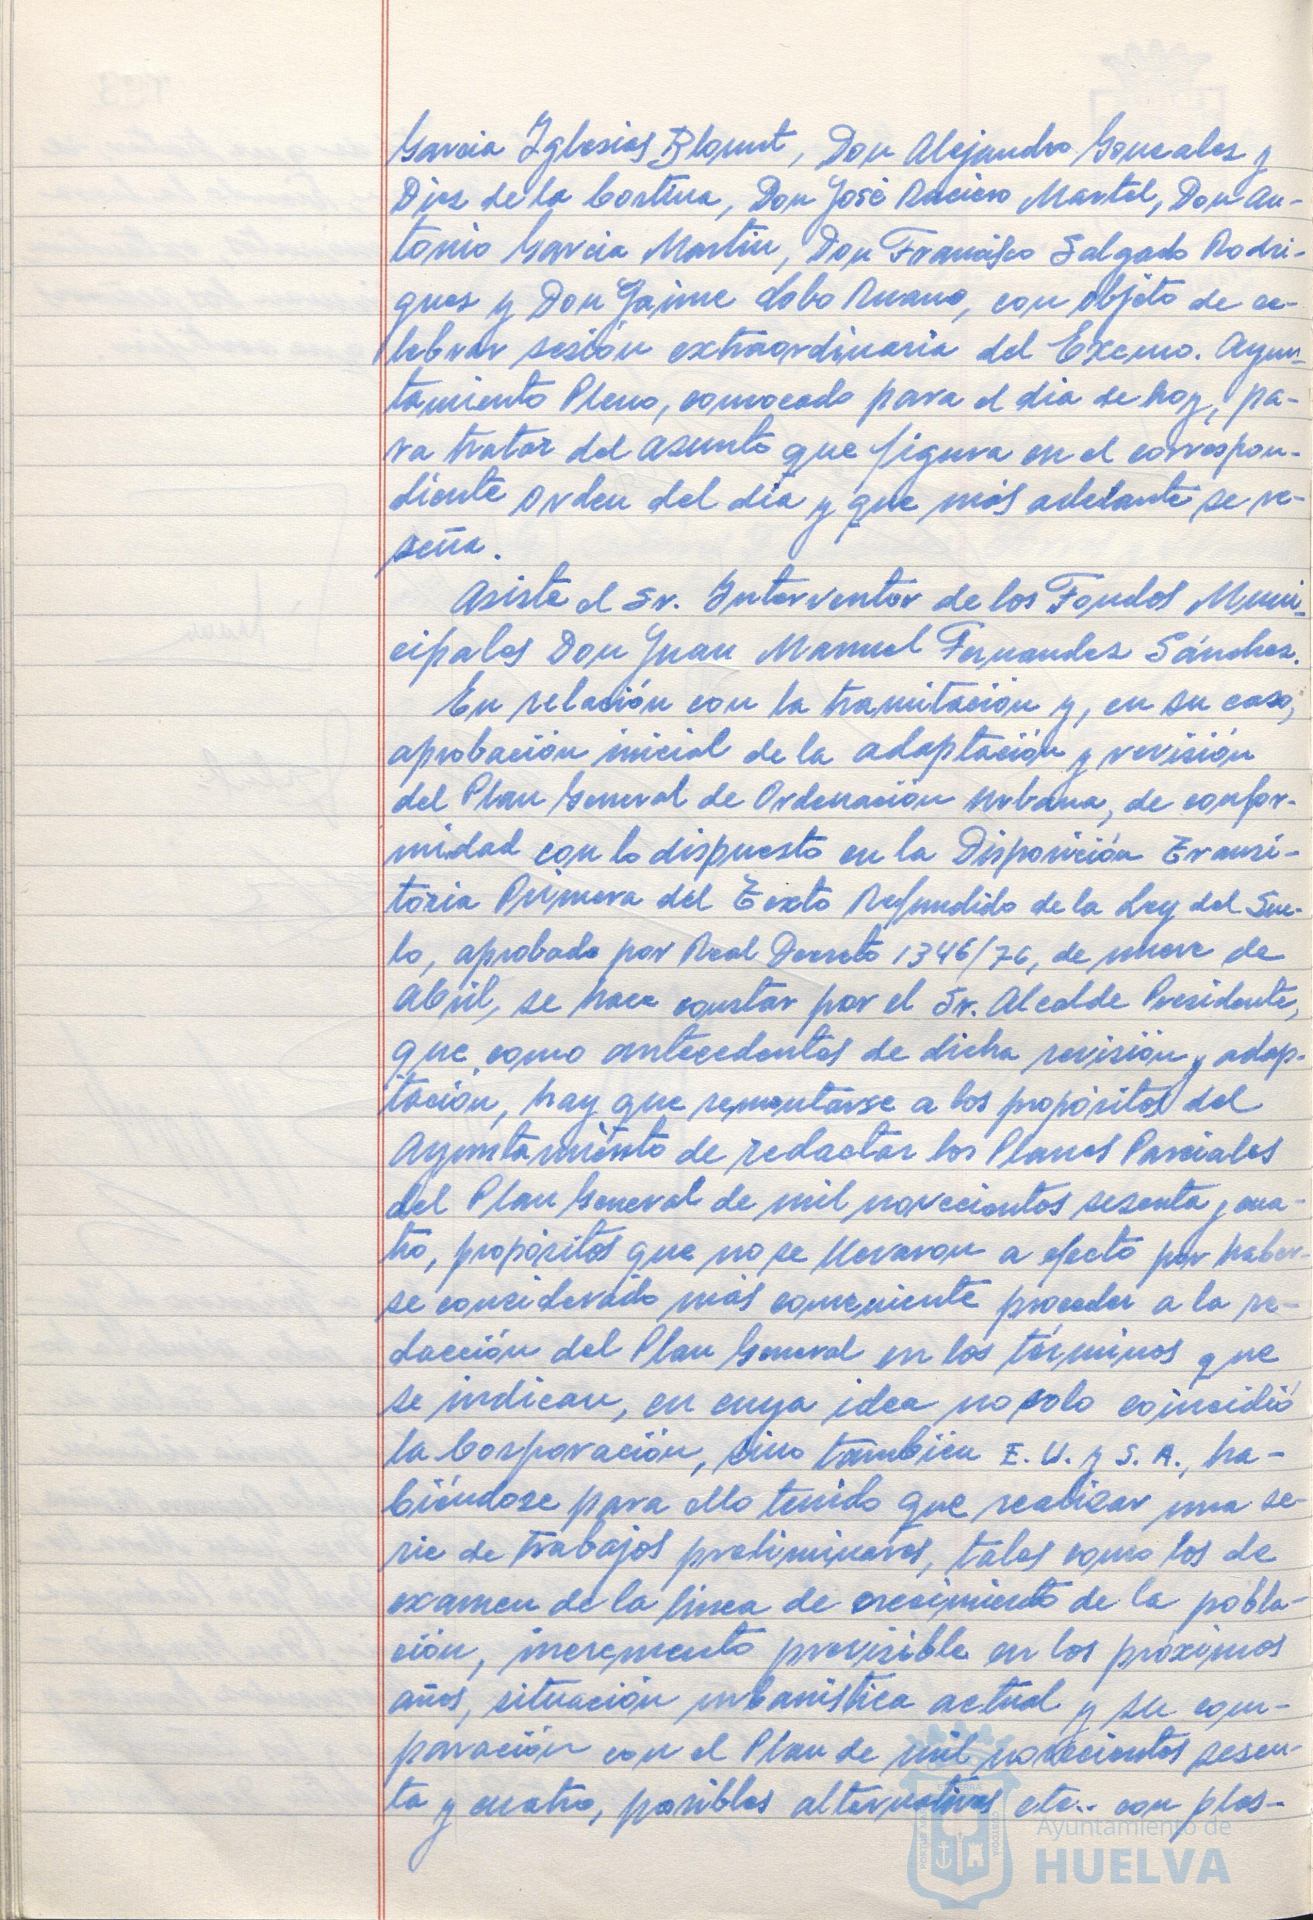 Garcia Iglesias Blount, Don Alejandro Gonzalez y
Diez de la Cortina, Don José Raciero Martel, Don An-
tonio Garcia Martin, Don Francisco Salgado Rodri-
guez y Don Jaime Lobo Ruano, con objeto de ce-
lebrar sesión extraordinaria del Excmo. Ayun-
tamiento Pleno, convocado para el dia de hoy, pa-
ra tratar del asunto que figura en el correspon-
diente orden del día y que más adelante se re-
seña.
Asiste el Sr. Interventor de los Fondos Muni-
cipales Don Juan Manuel Fernandez Sánchez.
En relación con la tramitación y, en su caso,
aprobación inicial de la adaptación y revisión
del Plan General de Ordenación Urbana, de confor-
midad con lo dispuesto en la Disposición Transi-
toria Primera del Texto Refundido de la Ley del Sue-
lo, aprobado por Real Decreto 1346/76, de nueve de
Abril, se hace constar por el Sr. Alcalde Presidente,
que como antecedentes de dicha revisión y adap-
tación, hay que remontarse a los propósitos del
Ayuntamiento de redactar los Planes Parciales
del Plan General de mil novecientos sesenta y cua-
tro, propósitos que no se llevaron a efecto por haber-
se considerado más conveniente proceder a la re-
dacción del Plan General en los términos que
se indican, en cuya idea no solo coincidió
la Corporación, sino también E. U. y S. A., ha-
biéndose para ello tenido que realizar una se-
rie de trabajos preliminares, tales como los de
examen de la linea de crecimiento de la pobla-
ción, incremento previsible en los próximos
años, situación urbanística actual y su com-
paración con el Plan de mil novecientos sesen-
ta y cuatro, posibles alternativas etc.. con plas-
Ayuntamiento de
HUELVA